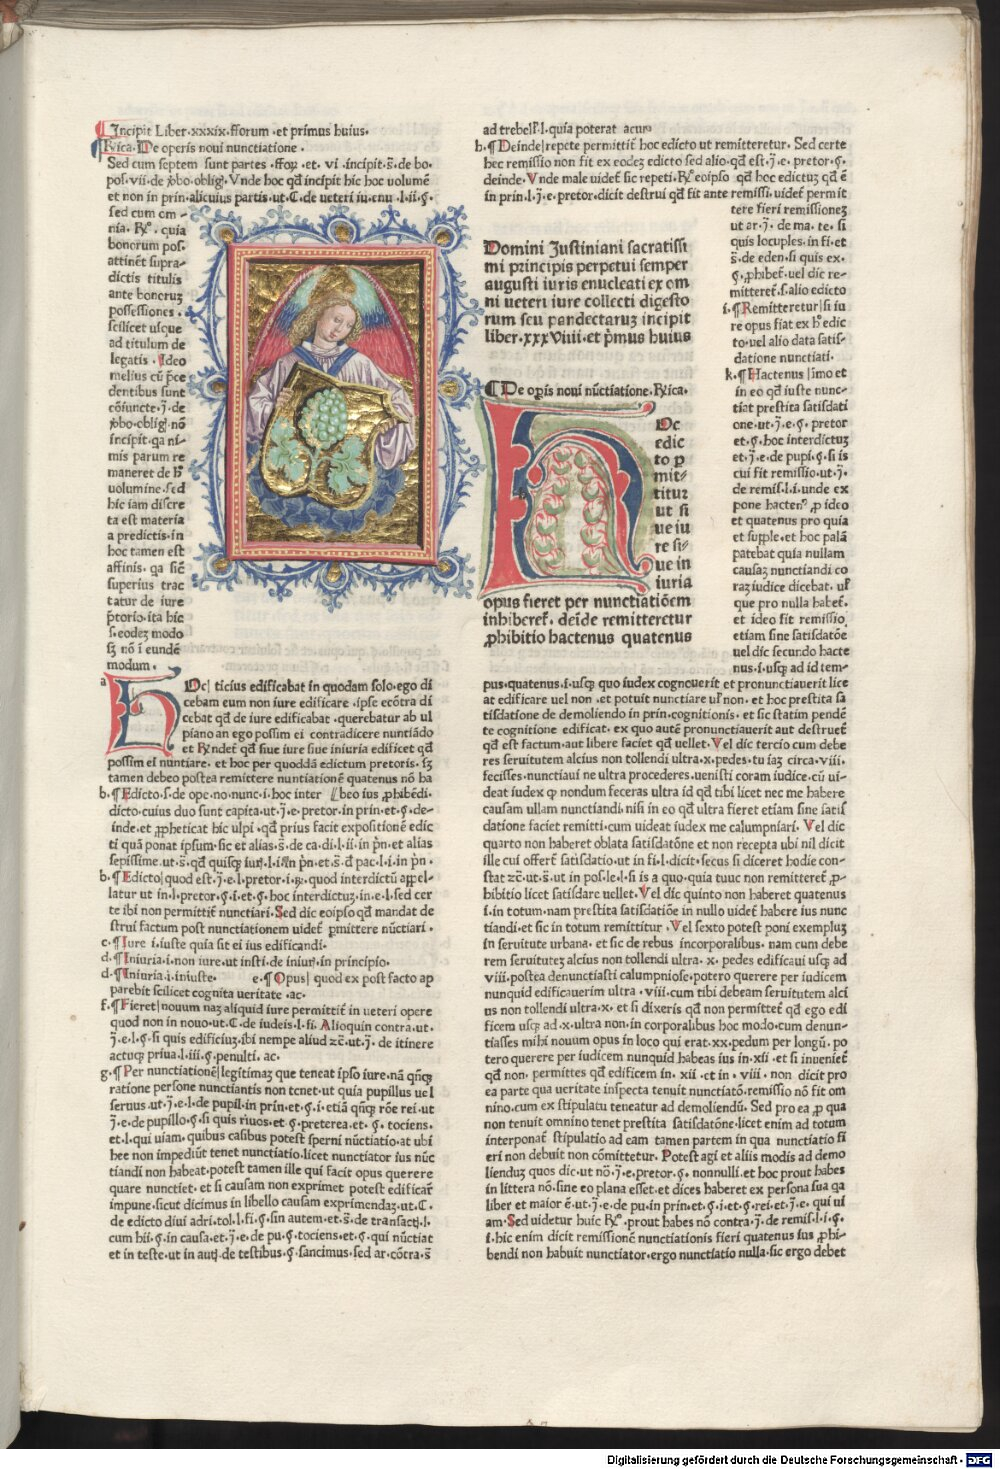 Incipit Liber·xxxix·fforum·et primus huius·
Rica·De operis noui nunctiatione·
Sed cum septem sunt partes·fforum·et·vi·incipit·s̄·de bo·
pos·vii·de ꝟbo·oblig·Vnde hoc qđ incipit hic hoc volumē
et non in prin·alicuius partis·ut·C·de ueteri iu·enu·l·ii·ꝯ·
sed cum om-
nia·R̄·quia
bonorum pos·
attinēt supra-
dictis titulis
ante bonorum
possessiones·
scilicet usque
ad titulum de
legatis·Ideo
melius cū p̄ce
dentibus sunt
cōiuncte·j̄·de
ꝟbo·oblig·nō
incipit·qa ni-
mis parum re
maneret de h̄
uolumine·sed
hic iam discre
ta est materia
a predictis·in
hoc tamen est
affinis·qa siē
superius trac
tatur de iure
p̄torio·ita hic
s·eodez modo
sz nō i eundē
modum·
a HOc| ticius edificabat in quodam solo·ego di
cebam eum non iure edificare·ipse ecōtra di
cebat qđ de iure edificabat·querebatur ab ul
piano an ego possim ei contradicere nuntiādo
et R̄ndet qđ siue iure siue iniuria edificet qđ
possim ei nuntiare·et hoc per quoddā edictum pretoris·sz
tamen debeo postea remittere nuntiationē quatenus nō ha
b·¶Edicto·s·de ope·no·nunc·i·hoc inter [[beo ius ꝓhibēdi·
dicto·cuius duo sunt capita·ut·j̄·e·pretor·in prin·et·ꝯ·de-
inde·et ꝓpheticat hic ulpi·qđ prius facit expositionē edic
ti quā ponat ipsum·sic et alias·s̄·de ca·di·l·ii·in pn̄·et alias
sepissime·ut·s̄·qđ quisqz iur·l·i·in pn̄·et·s̄·đ pac·l·i·in pn̄·
b·¶Edicto|quod est·j̄·e·l·pretor·i·R̄·quod interdictū appel-
latur ut in·l·pretor·ꝯ·i·et·ꝯ·hoc interdictuz·in·e·l·sed cer
te ibi non permittit nunctiari·Sed dic eoipso qđ mandat de
strui factum post nunctiationem uidet̄ ꝑmittere nūctiari·
c·¶Iure·i·iuste quia sit ei ius edificandi·
d·¶Iniuria·i·non iure·ut insti·de iniur·in principio·
d·¶Iniuria·i·iniuste· e·¶Opus|quod ex post facto ap
parebit scilicet cognita ueritate·ac·
f·¶Fieret|nouum naz aliquid iure permittit̄ in ueteri opere
quod non in nouo·ut·C·de iudeis·l·fi·Alioquin contra·ut·
j̄·e·l·ꝯ·si quis edificiuz·ibi nempe aliud zc̄·ut·j̄·de itinere
actuqz priua·l·iii·ꝯ·penulti·ac·
g·¶Per nunctiationē|legitimaz que teneat ipso iure·nā qn̄qz
ratione persone nunctiantis non tenet·ut quia pupillus uel
seruus·ut·j̄·e·l·de pupil·in prin·et·ꝯ·i·etiā qn̄qz rōe rei·ut
j̄·e·de pupillo·ꝯ·si quis riuos·et·ꝯ·preterea·et·ꝯ·tociens·
et·l·qui uiam·quibus casibus potest sperni nūctiatio·at ubi
hec non impediūt tenet nunctiatio·licet nunctiator ius nūc
tiandi non habeat·potest tamen ille qui facit opus querere
quare nunctiet·et si causam non exprimet potest edificar̄
impune·sicut dicimus in libello causam exprimendaz·ut·C·
de edicto diui adri·tol·l·fi·ꝯ·sin autem·et·s̄·de transact·l·
cum hii·ꝯ·in causa·et·j̄·e·de pu·ꝯ·tociens·et·ꝯ·qui nūctiat
et in teste·ut in aut·de testibus·ꝯ·sancimus·sed ar·cōtra·s̄
ad trebell·l·quia poterat acur
h·¶Deinde|repete permittit̄ hoc edicto ut remitteretur·Sed certe
hec remissio non fit ex eodez edicto sed alio·qđ est·j̄·e·pretor·ꝯ·
deinde·Vnde male uidet̄ sic repeti·R̄·eoipso qđ hoc edictuz qđ ē
in prin·l·j̄·e·pretor·dicit destrui qđ fit ante remissi·uidet̄ permit
tere fieri remissionez
ut ar·j̄·de ma·te·si
quis locuples·in fi·et
s̄·de eden·si quis ex·
ꝯ·ꝓhibet̄·uel dic re-
mitteret̄·s·alio edicto
i·¶Remitteretur|si iu
re opus fiat ex h̄ edic
to·uel alio data satis-
datione nunctiati·
k·¶Hactenus|imo et
in eo qđ iuste nunc-
tiat prestita satisdati
one·ut·j̄·e·ꝯ·pretor
et·ꝯ·hoc interdictuz
et·j̄·e·de pupi·ꝯ·si is
cui fit remissio·ut·j̄·
de remis·l·i·unde ex
pone hacten⁹·ꝓ ideo
et quatenus pro quia
et supple·et hoc palā
patebat quia nullam
causaz nunctiandi co
raz iudice dicebat·ul̄
que pro nulla habet̄·
et ideo fit remissio
etiam sine satisdatōe
uel dic secundo hacte
nus·i·usqz ad id tem-
pus·quatenus·i·usqz quo iudex cognouerit et pronunctiauerit lice
at edificare uel non·et potuit nunctiare ul̄ non·et hoc prestita sa
tisdatione de demoliendo in prin·cognitionis·et sic statim pendē
te cognitione edificat·ex quo autē pronunctiauerit aut destruet̄
qđ est factum·aut libere faciet qđ uellet·Vel dic tercio cum debe
res seruitutem alcius non tollendi ultra·x·pedes·tu iaz circa·viii·
fecisses·nunctiaui ne ultra procederes·uenisti coram iudice·cū ui-
deat iudex ꝙ nondum feceras ultra id qđ tibi licet nec me habere
causam ullam nunctiandi·nisi in eo qđ ultra fieret etiam sine satis
datione faciet remitti·cum uideat iudex me calumpniari·Vel dic
quarto non haberet oblata satisdatōne et non recepta ubi nil dicit
ille cui offert̄ satisdatio·ut in fi·l·dicit·secus si diceret hodie con-
stat zc̄·ut·s̄·ut in pos·le·l·si is a quo·quia tuuc non remitteret̄ ꝓ-
hibitio licet satisdare uellet·Vel dic quinto non haberet quatenus
i·in totum·nam prestita satisdatiōe in nullo uidet̄ habere ius nunc
tiandi·et sic in totum remittitur·Vel sexto potest poni exempluz
in seruitute urbana·et sic de rebus incorporalibus·nam cum debe
rem seruitutez alcius non tollendi ultra·x·pedes edificaui usqz ad
viii·postea denunctiasti calumpniose·potero querere per iudicem
nunquid edificauerim ultra·viii·cum tibi debeam seruitutem alci
us non tollendi ultra·x·et si dixeris qđ non permittet̄ qđ ego edi
ficem usqz ad·x·ultra non·in corporalibus hoc modo·cum denun-
tiasses mihi nouum opus in loco qui erat·xx·pedum per longū·po
tero querere per iudicem nunquid habeas ius in·xii·et si inueniet̄
qđ non·permittes qđ edificem in·xii·et in·viii·non dicit pro
ea parte qua ueritate inspecta tenuit nunctiatō·remissio nō fit om
nino·cum ex stipulatu teneatur ad demoliendū·Sed pro ea ꝓ qua
non tenuit omnino tenet prestita satisdatōne·licet enim ad totum
interponat̄ stipulatio ad eam tamen partem in qua nunctiatio fi
eri non debuit non cōmittetur·Potest agi et aliis modis ad demo
lienduz quos dic·ut nō·j̄·e·pretor·ꝯ·nonnulli·et hoc prout habes
in littera nō·sine eo plana esset·et dices haberet ex persona sua qa
liber et maior ē·ut·j̄·e·de pu·in prin·et·ꝯ·i·et·ꝯ·rei·et·j̄·e·qui ui
am·Sed uidetur huic R̄·prout habes nō contra·j̄·de remis·l·i·ꝯ·
i·hic enim dicit remissionē nunctiationis fieri quatenus ius ꝓhi-
bendi non habuit nunctiator·ergo nunctiatio nulla·sic ergo debet
Domini Justiniani sacratissi
mi principis perpetui semper
augusti iuris enucleati ex om
ni ueteri iure collecti digesto
rum seu pandectaruz incipit
liber·xxxviiii·et p̄mus huius
¶De opis noui nūctiatione·Rica·
HOc
edic
to ꝑ
mit-
titur
ut si
ue iu
re si-
ue in
iuria
opus fieret per nunctiatiōem
inhiberet̄·deīde remitteretur
ꝓhibitio hactenus quatenus
Digitalisierung gefördert durch die Deutsche Forschungsgemeinschaft - DFG